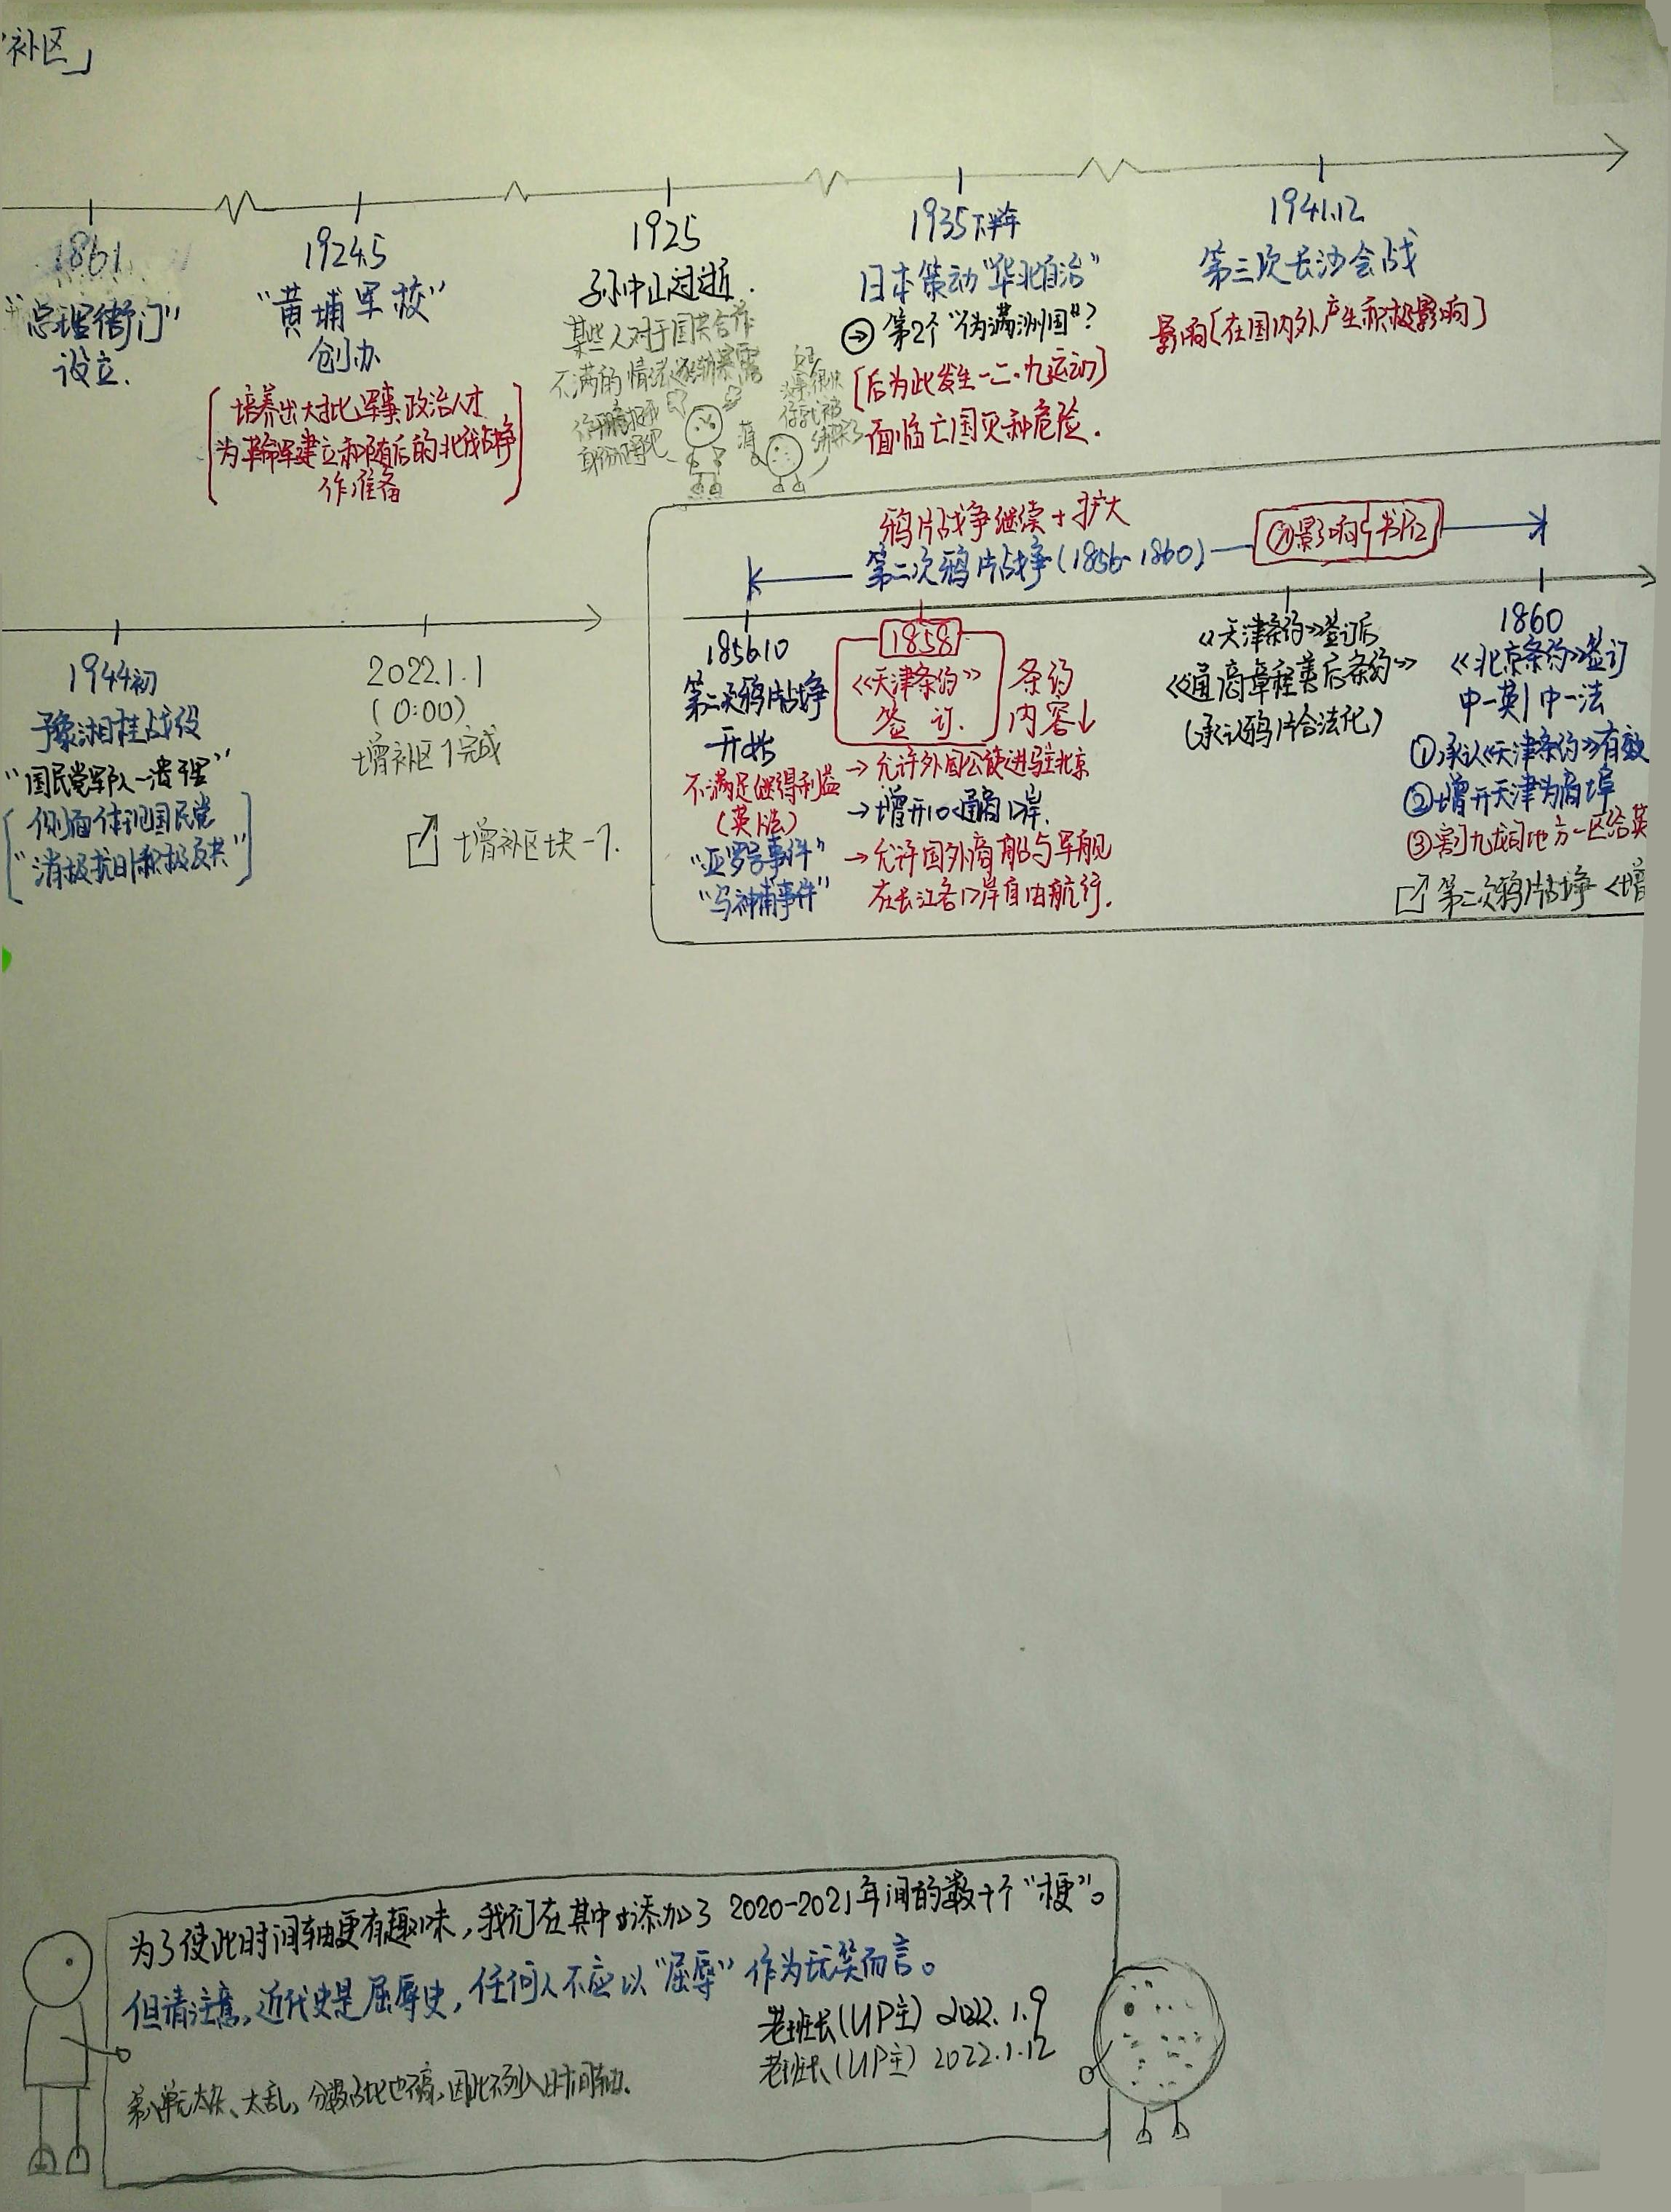 补区」
1861
“总理衙门”
设立.
1924.5
“黄埔军校”
创办
[培养出大批军事政治人才
为革命军建立和随后的北伐战争
作准备]
1925
孙中山逝逝.
某些人对于国共合作
不满的情绪逐渐暴露
1935下半年
日本策动“华北自治”
→ 第2个“伪满洲国”?
[后为此发生一二·九运动]
面临亡国灭种危险.
1941.12
第三次长沙会战
影响[在国内外产生积极影响]
1944初
豫湘桂战役
“国民党军队一溃千里”
[侧面体现国民党
“消极抗日积极反共”]
2022.1.1
(0:00)
增补区1完成
增补区块-1.
鸦片战争继续+扩大
第二次鸦片战争(1856-1860)
影响
1856.10
第二次鸦片战争
开始
不满足继得利益
(英法)
“亚罗号事件”
“马神甫事件”
1858
《天津条约》
签订.
条约
内容↓
→允许外国公使进驻北京
→增开10处通商口岸.
→允许国外商船与军舰
在长江各口岸自由航行.
《天津条约》签订后
《通商章程善后条约》
(承认鸦片合法化)
1860
《北京条约》签订
中-英|中-法
①承认《天津条约》有效
②增开天津为商埠
③割九龙司地方一区给英
第二次鸦片战争<增
为了使此时间轴更有趣味,我们在其中添加了2020-2021年间的数十个“梗”。
但请注意,近代史是屈辱史,任何人不应以“屈辱”作为玩笑而言。
老班长(UP主) 2022.1.9
老班长(UP主) 2022.1.12
第八单元太杂、太乱,分数占比也不高,因此不列入时间轴.